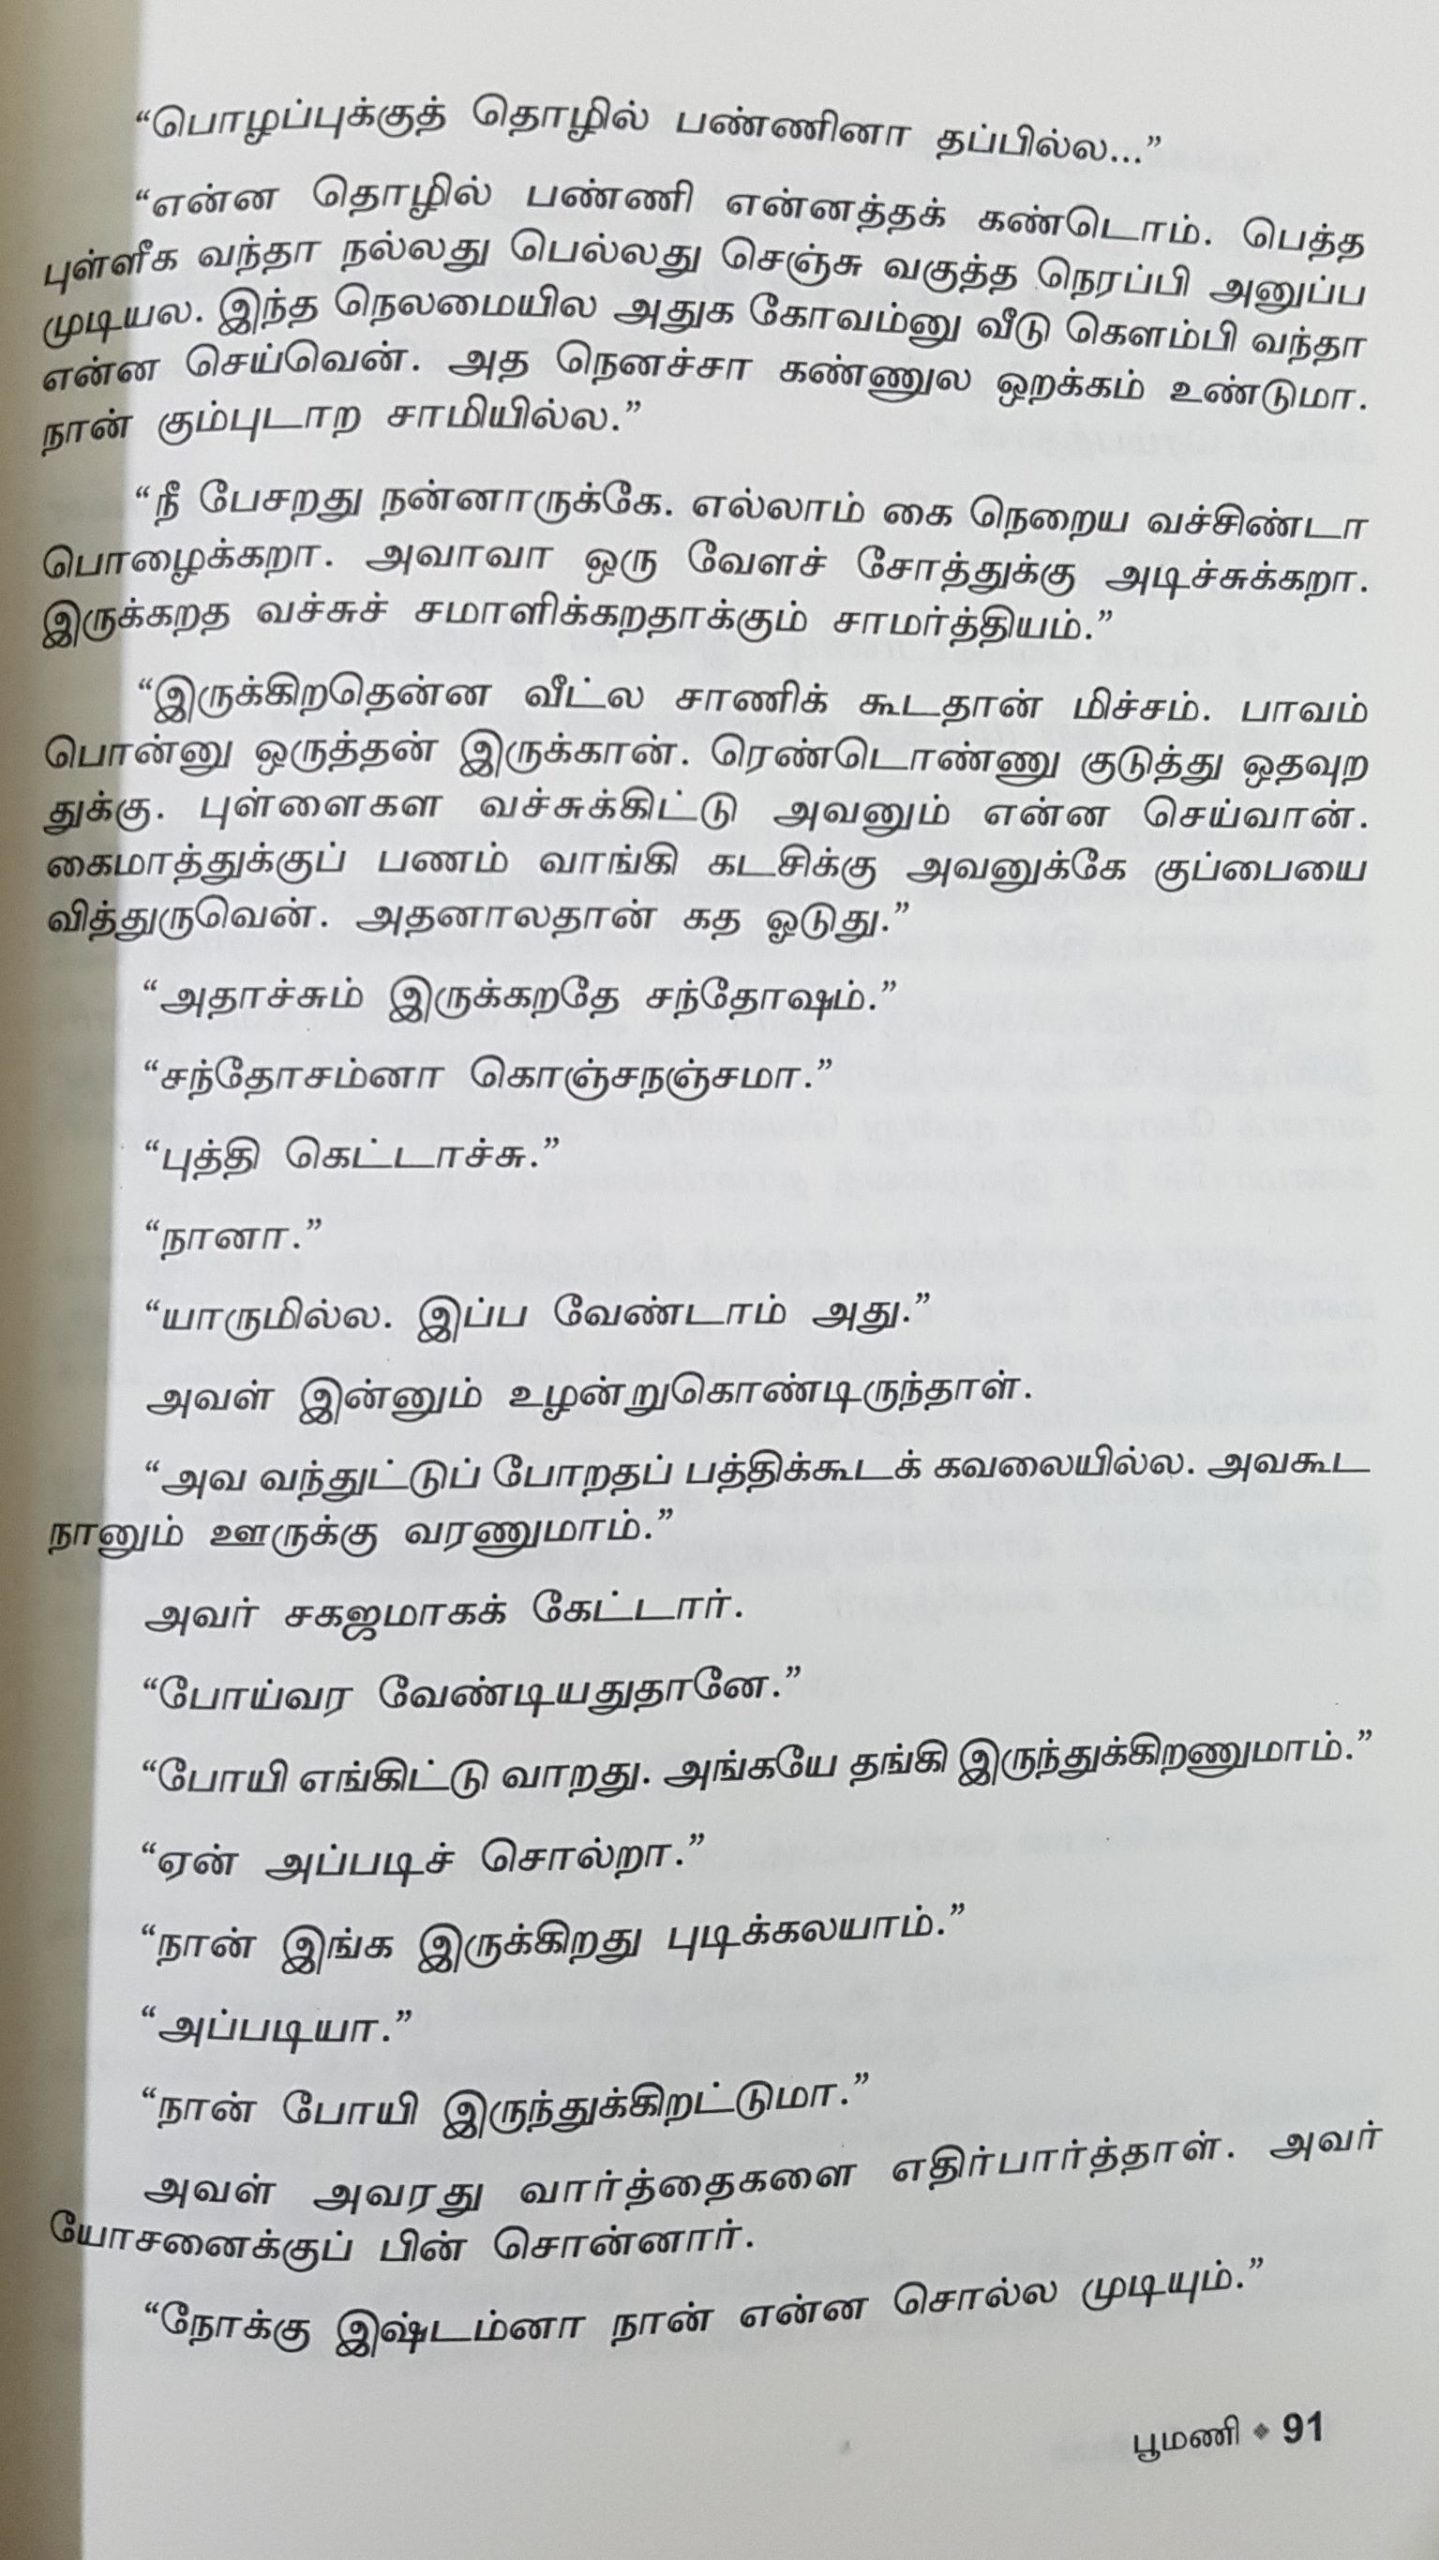 “பொழப்புக்குத் தொழில் பண்ணினா தப்பில்ல...”
“என்ன தொழில் பண்ணி என்னத்தக் கண்டொம். பெத்த
புள்ளீக வந்தா நல்லது பெல்லது செஞ்சு வகுத்த நெரப்பி அனுப்ப
முடியல. இந்த நெலமையில அதுக கோவம்னு வீடு கெளம்பி வந்தா
என்ன செய்வென். அத நெனச்சா கண்ணுல ஒறக்கம் உண்டுமா.
நான் கும்புடாற சாமியில்ல.”
“நீ பேசறது நன்னாருக்கே. எல்லாம் கை நெறைய வச்சிண்டா
பொழைக்கறா. அவாவா ஒரு வேளச் சோத்துக்கு அடிச்சுக்கறா.
இருக்கறத வச்சுச் சமாளிக்கறதாக்கும் சாமர்த்தியம்.”
“இருக்கிறதென்ன வீட்ல சாணிக் கூடதான் மிச்சம். பாவம்
பொன்னு ஒருத்தன் இருக்கான். ரெண்டொண்ணு குடுத்து ஒதவுற
துக்கு. புள்ளைகள வச்சுக்கிட்டு அவனும் என்ன செய்வான்.
கைமாத்துக்குப் பணம் வாங்கி கடசிக்கு அவனுக்கே குப்பையை
வித்துருவென். அதனாலதான் கத ஓடுது.”
“அதாச்சும் இருக்கறதே சந்தோஷம்.”
“சந்தோசம்னா கொஞ்சநஞ்சமா.”
“புத்தி கெட்டாச்சு.”
“நானா.”
“யாருமில்ல. இப்ப வேண்டாம் அது.”
அவள் இன்னும் உழன்றுகொண்டிருந்தாள்.
“அவ வந்துட்டுப் போறதப் பத்திக்கூடக் கவலையில்ல. அவகூட
நானும் ஊருக்கு வரணுமாம்.”
அவர் சகஜமாகக் கேட்டார்.
“போய்வர வேண்டியதுதானே.”
“போயி எங்கிட்டு வாறது. அங்கயே தங்கி இருந்துக்கிறணுமாம்.”
“ஏன் அப்படிச் சொல்றா.”
“நான் இங்க இருக்கிறது புடிக்கலயாம்.”
“அப்படியா.”
“நான் போயி இருந்துக்கிறட்டுமா.”
அவள் அவரது வார்த்தைகளை எதிர்பார்த்தாள். அவர்
யோசனைக்குப் பின் சொன்னார்.
“நோக்கு இஷ்டம்னா நான் என்ன சொல்ல முடியும்.”
பூமணி ❖ 91